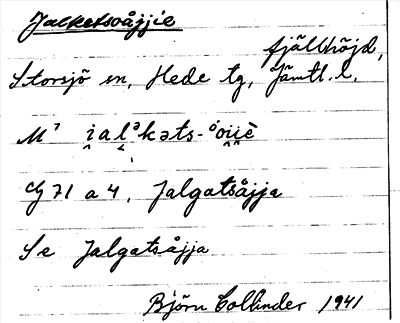 Jalketsoåjjie
fjällhöjd,
Storsjö sn, Hede tg, Jämtl. l.
M⁷ i̯al̬ᵊkəts-°oi̯i̯è
G 71 a 4, Jalgatsåjja
Se Jalgatsåjja
Björn Collinder 1941